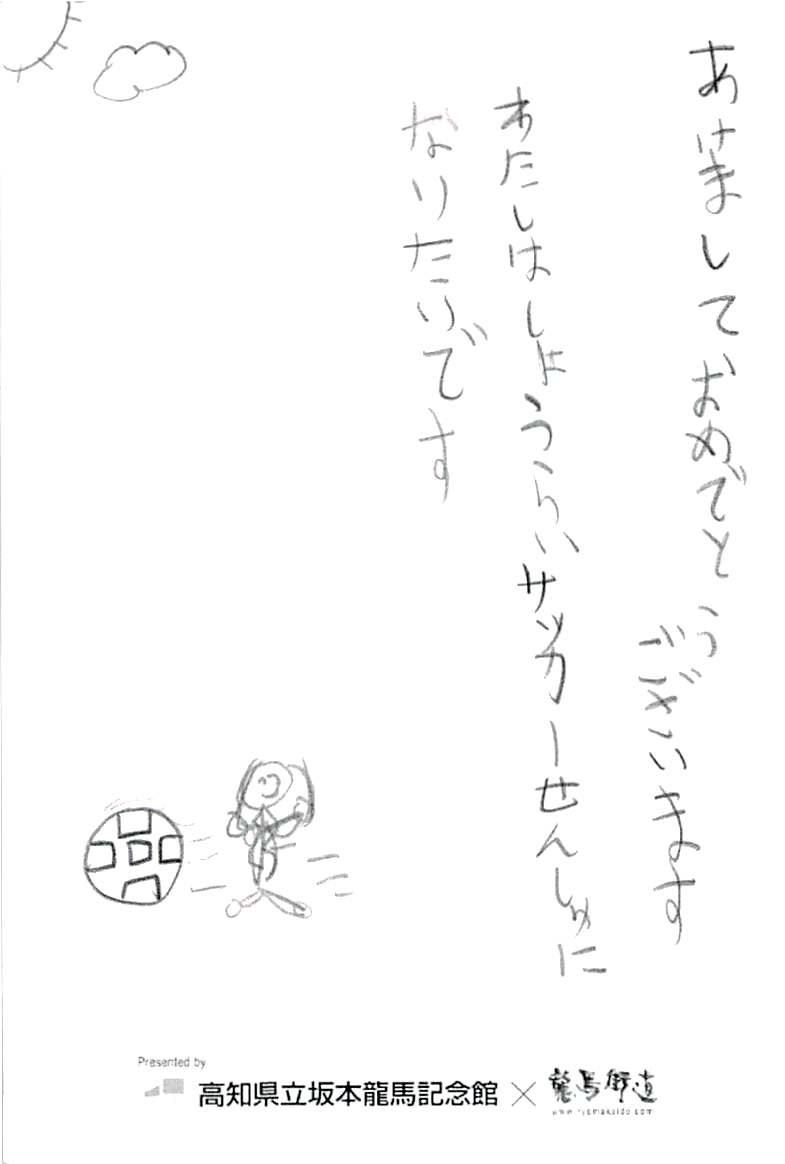 あけましておめでとう
ございます
わたしはしょうらいサッカーせんしゅに
なりたいです
Presented by
高知県立坂本龍馬記念館×龍馬街道
www.ryomakaido.com